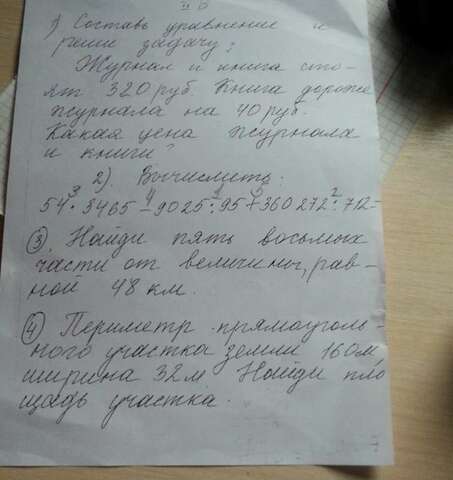 II в
1) Составь уравнение и
реши задачу:
Журнал и книга сто-
ят 320 руб. Книга дороже
журнала на 40 руб.
Какая цена журнала
и книги?
2). Вычислить:
3 4 1 5 2
54 · 3465 - 9025 : 95 + 360272 : 712 =
3 Найди пять восьмых
части от величины, рав-
ной 48 км.
4 Периметр прямоуголь-
ного участка земли 160м,
ширина 32м. Найди пло
щадь участка.